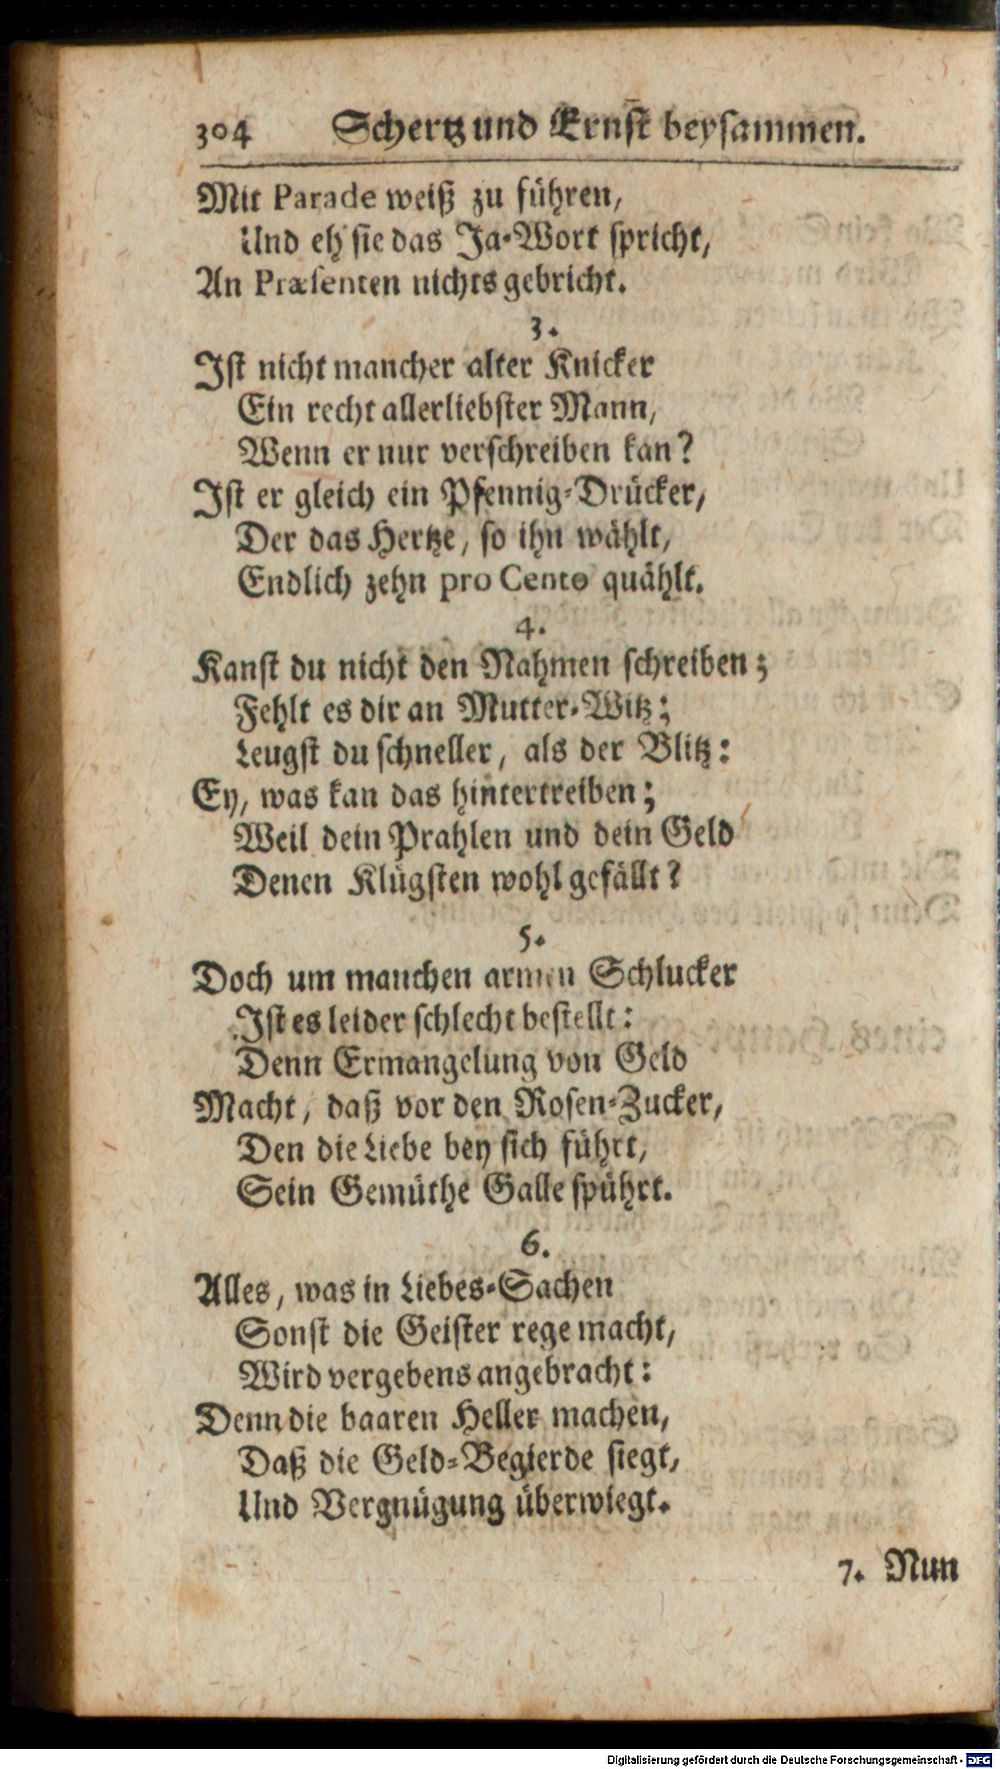 304 Schertz und Ernst beysammen.
Mit Parade weiß zu führen,
Und eh' sie das Ja-Wort spricht,
An Præsenten nichts gebricht.
3.
Ist nicht mancher alter Knicker
Ein recht allerliebster Mann,
Wenn er nur verschreiben kan?
Ist er gleich ein Pfennig-Drücker,
Der das Hertze, so ihn wählt,
Endlich zehn pro Cento quählt.
4.
Kanst du nicht den Nahmen schreiben;
Fehlt es dir an Mutter-Witz;
Leugst du schneller, als der Blitz:
Ey, was kan das hintertreiben;
Weil dein Prahlen und dein Geld
Denen Klügsten wohl gefällt?
5.
Doch um manchen armen Schlucker
Ist es leider schlecht bestellt:
Denn Ermangelung von Geld
Macht, daß vor den Rosen-Zucker,
Den die Liebe bey sich führt,
Sein Gemüthe Galle spührt.
6.
Alles, was in Liebes-Sachen
Sonst die Geister rege macht,
Wird vergebens angebracht:
Denn die baaren Heller machen,
Daß die Geld-Begierde siegt,
Und Vergnügung überwiegt.
7. Nun
Digitalisierung gefördert durch die Deutsche Forschungsgemeinschaft - DFG